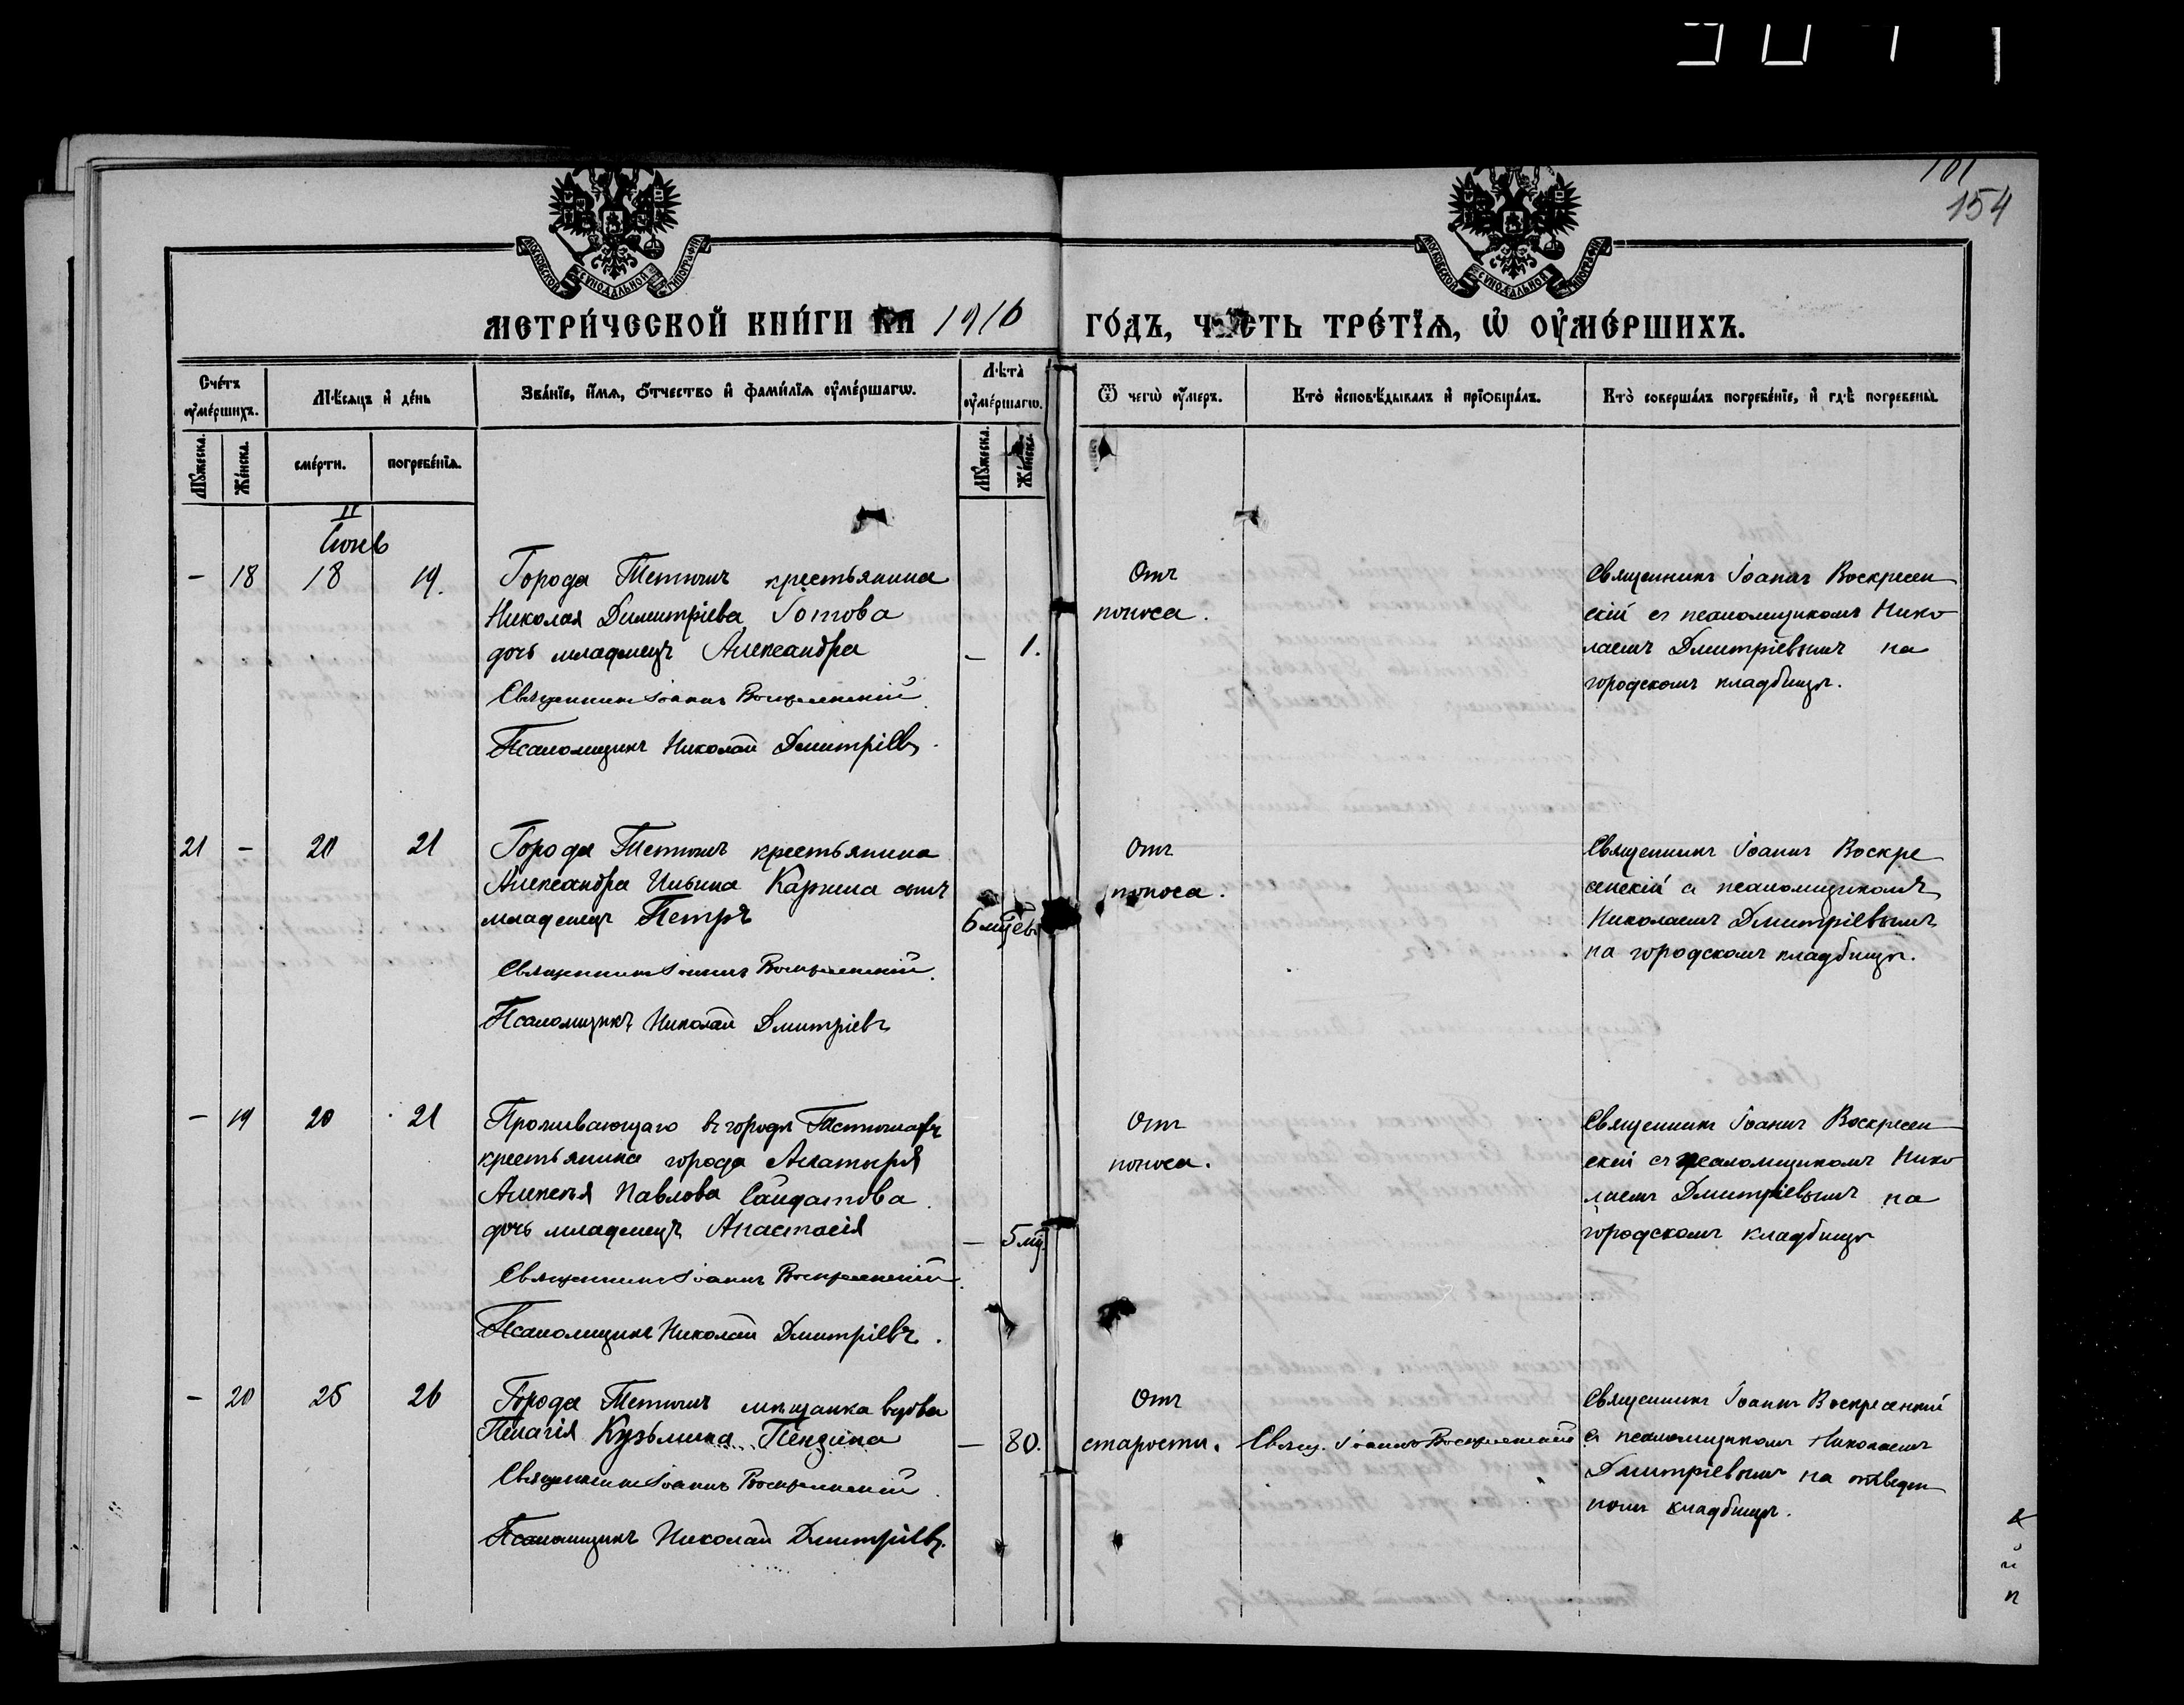 101
154
МОСКОВСКОЙ СѴНОДАЛЬНОЙ ТИПОГРАФІИ
МОСКОВСКОЙ СѴНОДАЛЬНОЙ ТИПОГРАФІИ
МЕТРИ́ЧЕСКОЙ КНИ́ГИ НА 1916 ГО́ДЪ, ЧАСТЬ ТРЕ́ТЇѦ, Ѡ ОУ҆МЕ́РШИХЪ.
Сче́тъ оу҆ме́ршихъ.
Мѣ́сяцъ и҆ де́нь
Зва́нїе, и҆́мѧ, ѻ҆́тчество и҆ фами́лїѧ оу҆ме́ршагѡ.
Лѣта̀ оу҆ме́ршагѡ.
Ѿ чегѡ̀ оу҆́меръ.
Кто̀ и҆сповѣ́дывалъ и҆ прїѻбща́лъ.
Кто̀ соверша́лъ погребе́нїе, и҆ гдѣ̀ погребены̀.
Мꙋжеска.
Же́нска.
сме́рти.
погребе́нїѧ.
Мꙋжеска.
Же́нска.
Іюнь
— 18 18 19.
Города Тетюшъ крестьянина
Николая Димитріева
дочь младенецъ Александра
— 1.
Священникъ Іоаннъ Воскресенскій
Псаломщикъ Николай Дмитріевъ.
Отъ
поноса.
Священникъ Іоаннъ Воскресен
скій съ псаломщикомъ Нико
лаемъ Дмитріевымъ на
городскомъ кладбищѣ.
21 — 20 21
Города Тетюшъ крестьянина
Александра Ильина сынъ
младенецъ Петръ
6 мцевъ
Священникъ Іоаннъ Воскресенскій.
Псаломщикъ Николай Дмитріевъ
Отъ
поноса.
Священникъ Іоаннъ Воскре
сенскій съ псаломщикомъ
Николаемъ Дмитріевымъ
на городскомъ кладбищѣ.
— 19 20 21
Проживающаго въ городѣ Тетюшахъ
крестьянина города Алатыря
Алексѣя Павлова
дочь младенецъ Анастасія
— 5 мц.
Священникъ Іоаннъ Воскресенскій.
Псаломщикъ Николай Дмитріевъ.
Отъ
поноса.
Священникъ Іоаннъ Воскресен
скій съ псаломщикомъ Нико
лаемъ Дмитріевымъ на
городскомъ кладбищѣ
— 20 25 26
Города Тетюшъ мѣщанка вдова
Пелагія Кузьмина Пензина
— 80.
Священникъ Іоаннъ Воскресенскій.
Псаломщикъ Николай Дмитріевъ.
Отъ
старости.
Свящ. Іоаннъ Воскресенскій
Священникъ Іоаннъ Воскресенскій
съ псаломщикомъ Николаемъ
Дмитріевымъ на отведен
номъ кладбищѣ.